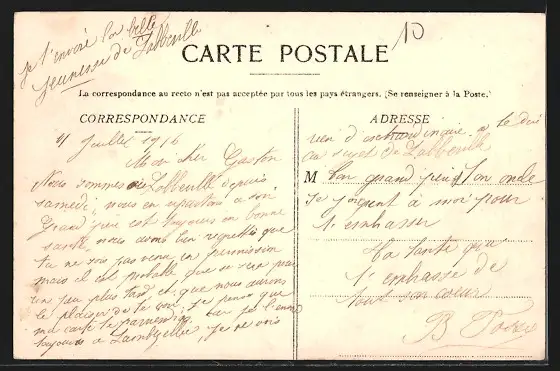 je t'envoie la belle
jeunesse de Lobbeville
10
CARTE POSTALE
La correspondance au recto n'est pas acceptée par tous les pays étrangers. (Se renseigner à la Poste.)
CORRESPONDANCE
ADRESSE
Juillet 1916
Mon cher Gaston
Nous sommes à Lobbeville depuis
samedi, nous en repartons ce soir
Grand père est toujours en bonne
santé nous avons bien regretté que
tu ne sois pas venu en permission
mais il est probable que ce sera pour
un peu plus tard et que nous aurons
le plaisir de te voir, je pense que
ma carte te parviendra car je l'envoie
toujours à je ne vois
rien d' à te dire
au sujet de Lobbeville
M Ton grand père, Ton oncle
se joignent à moi pour
t'embrasser
Ta tante qui
t'embrasse de
tout son cœur
B